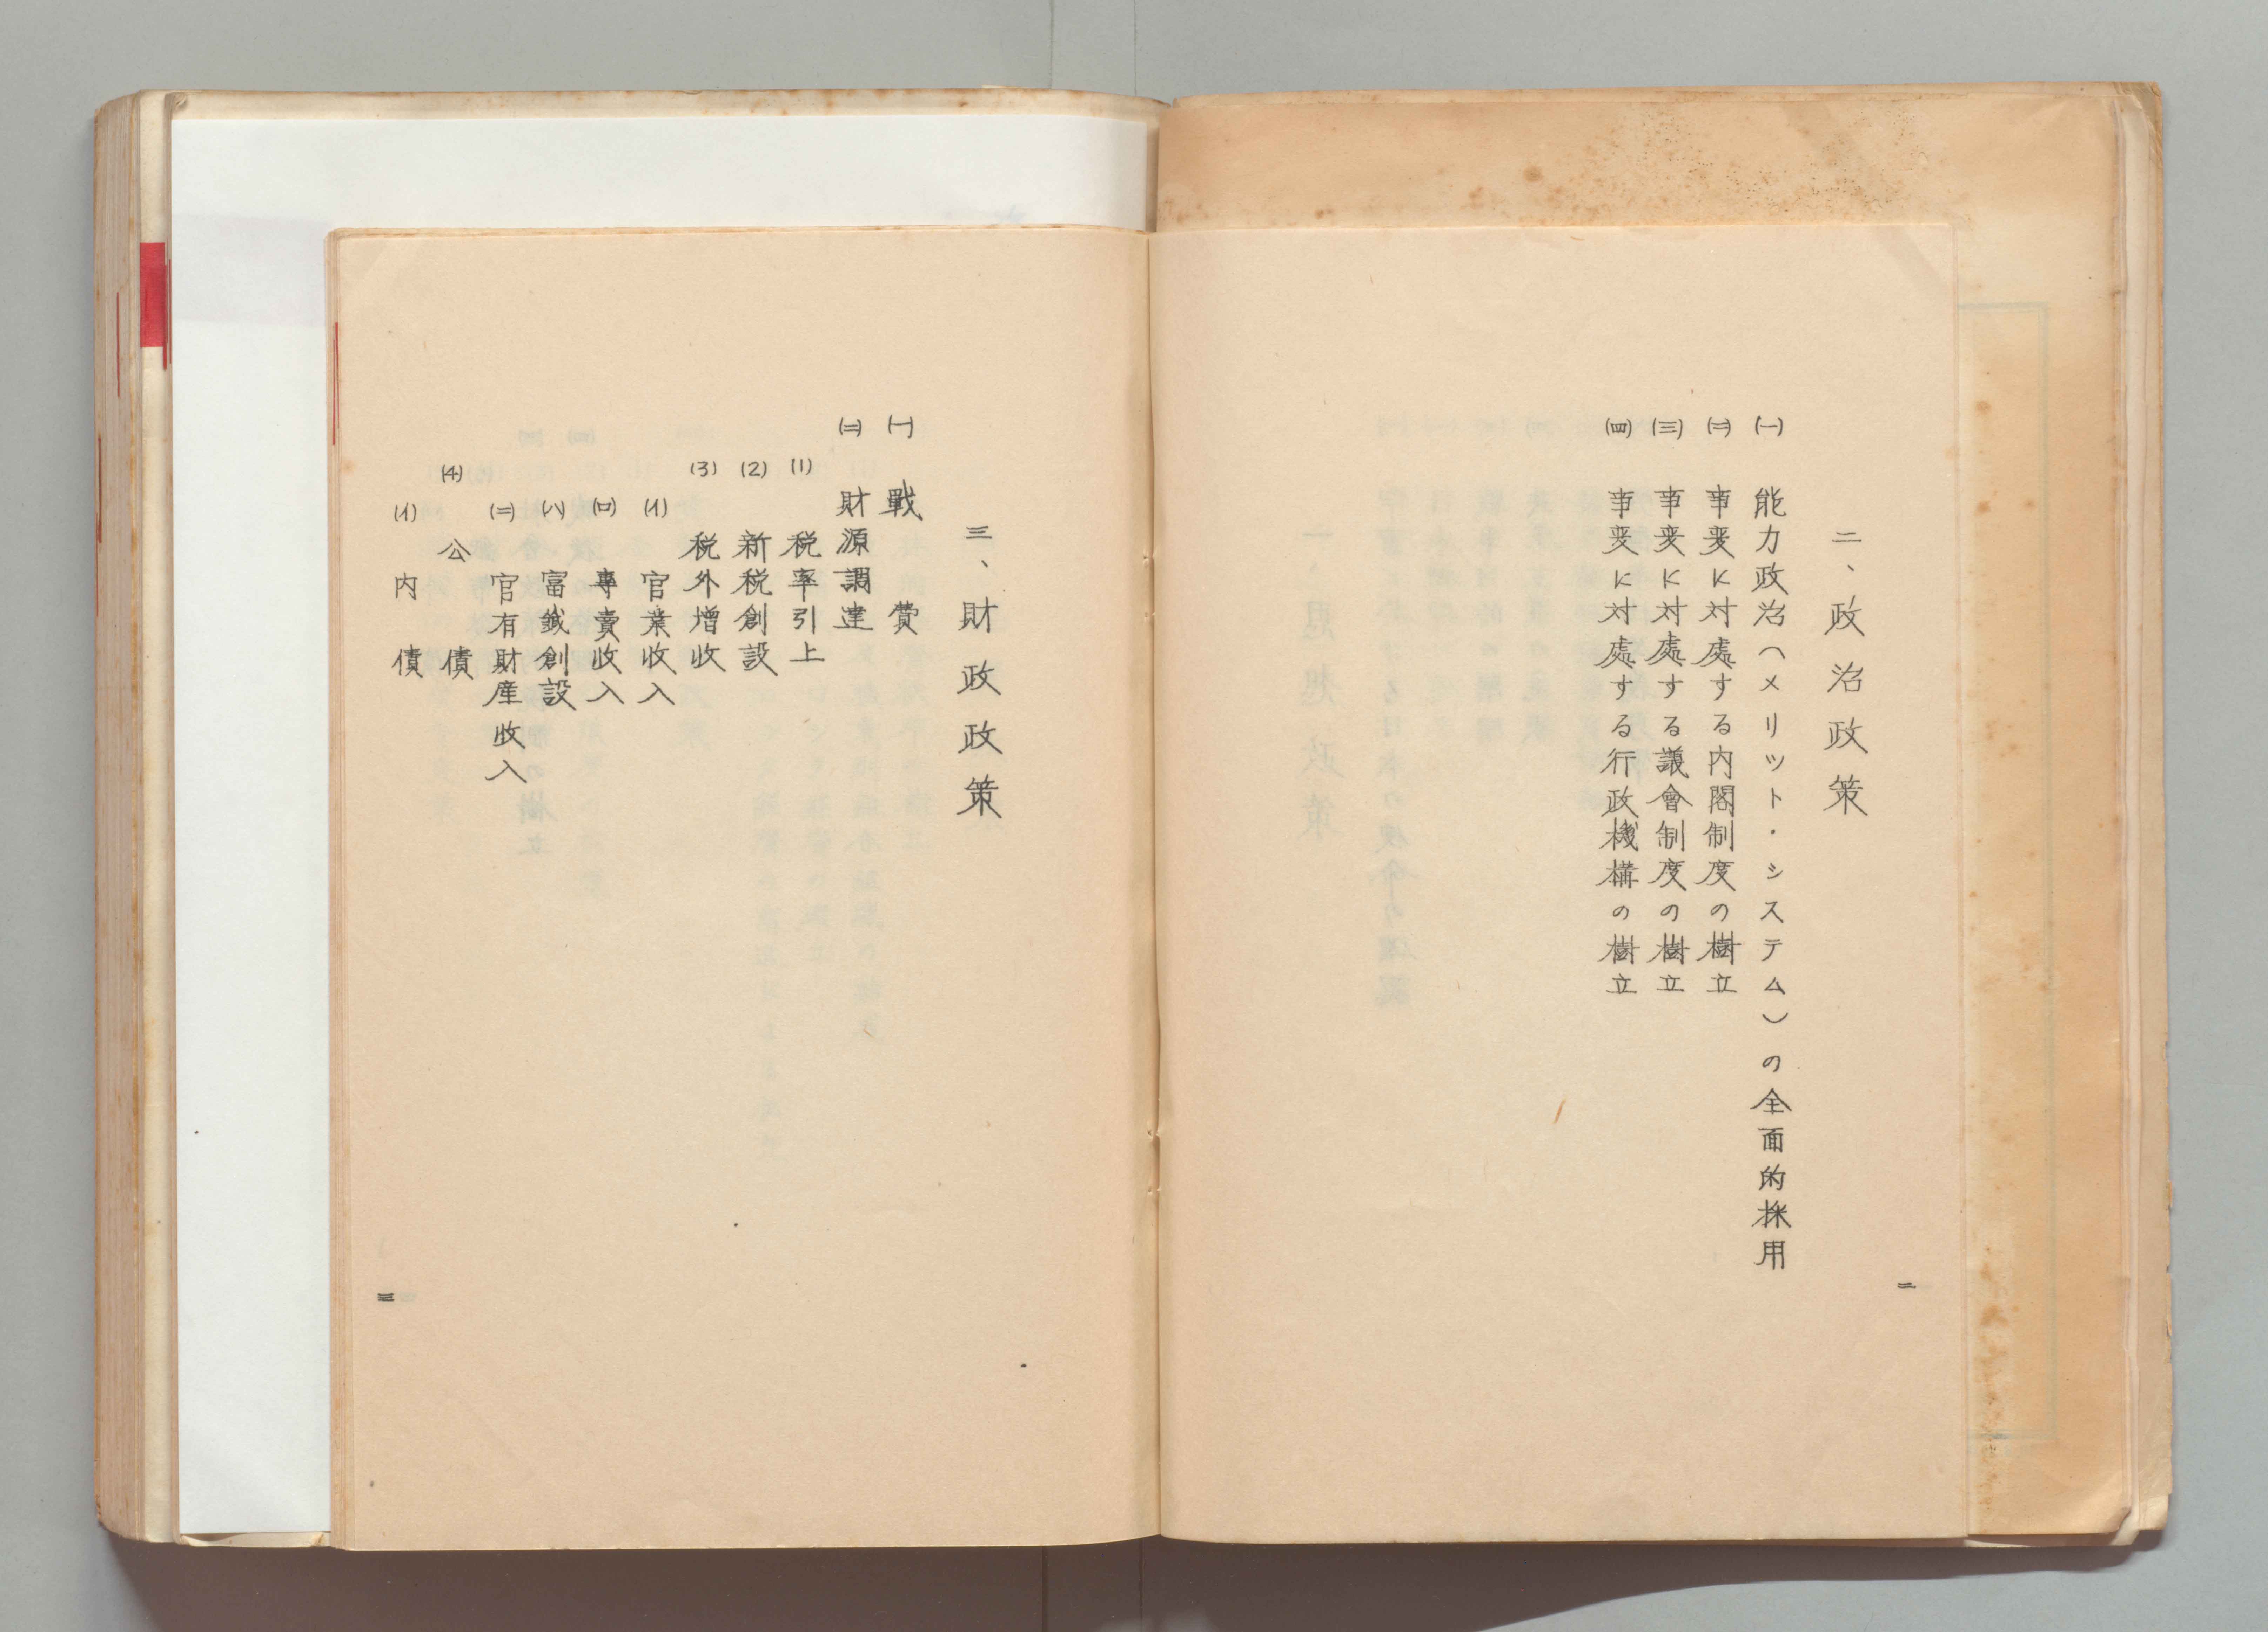 二、政治政策
(一) 能力政治(メリット・システム)の全面的採用
(二) 事変に対処する内閣制度の樹立
(三) 事変に対処する議會制度の樹立
(四) 事変に対処する行政機構の樹立
二
三、財政政策
(一) 戰費
(二) 財源調達
(1) 税率引上
(2) 新税創設
(3) 税外増收
(イ) 官業收入
(ロ) 専賣收入
(ハ) 富籤創設
(ニ) 官有財産收入
(4) 公債
(イ) 内債
三